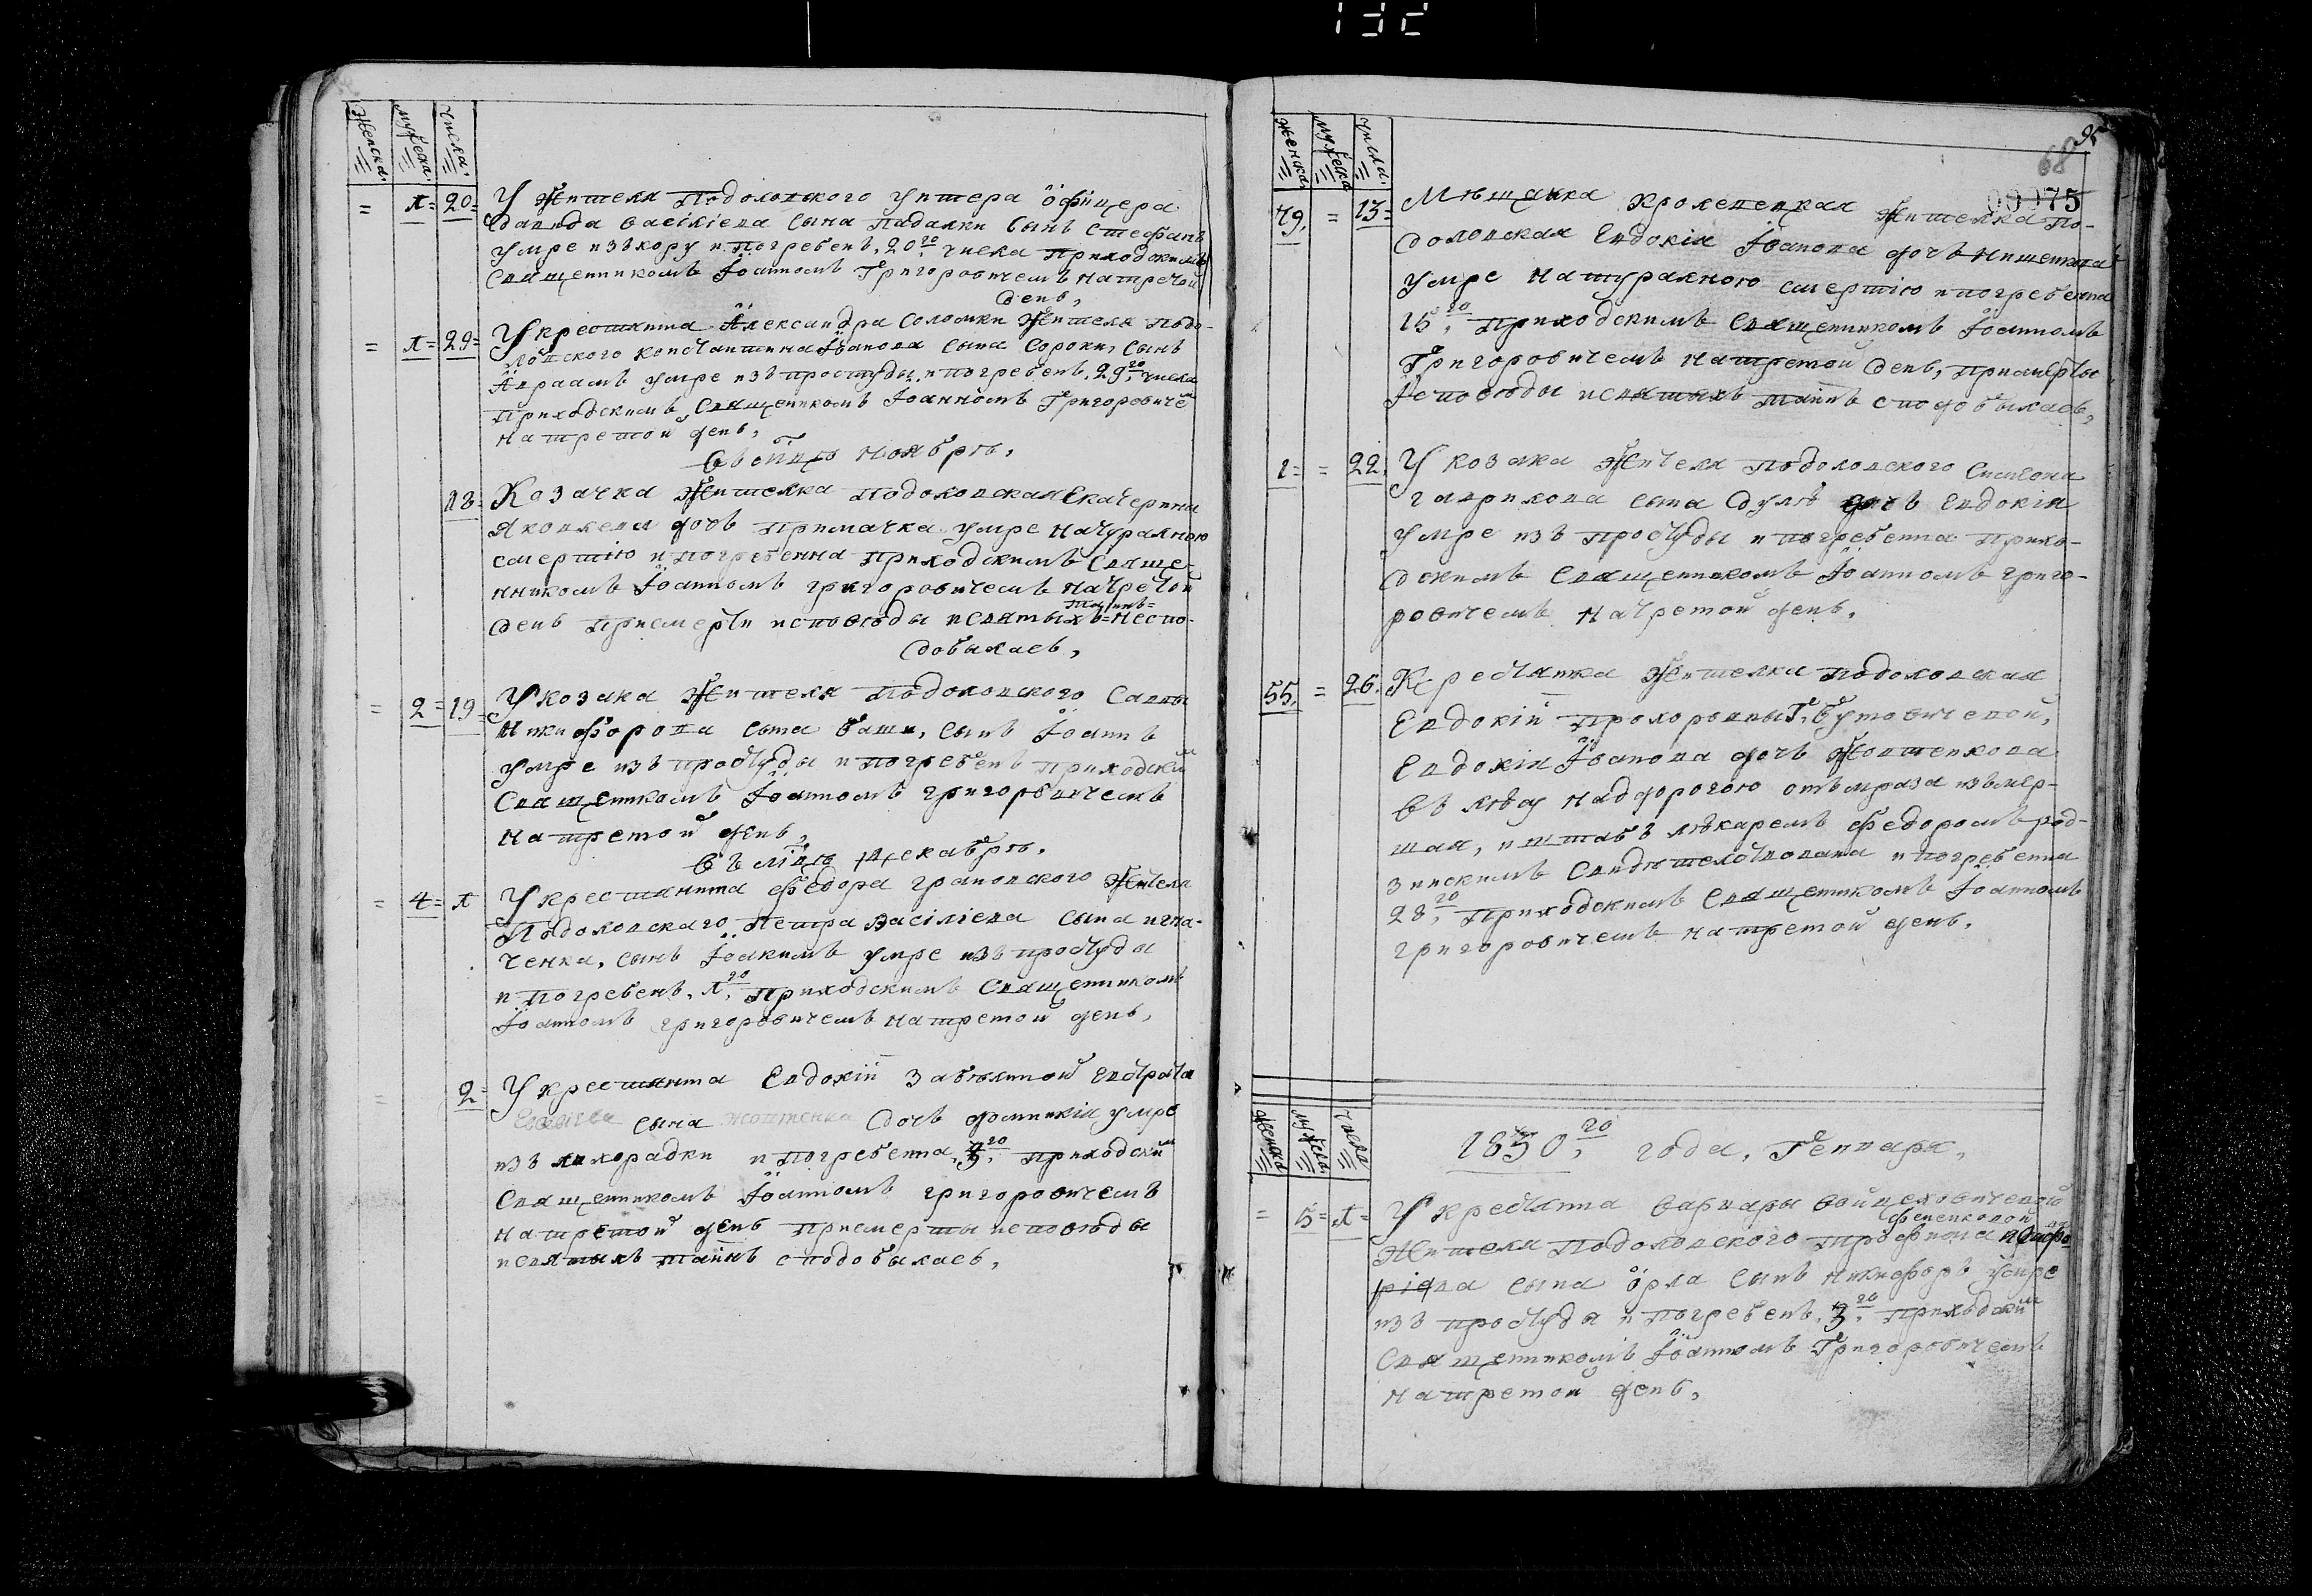 132
Женска. Мужеска. Числа.
= 1= 20= У Жителя Подоловского Унтера Офицера
Давида Васілиева сына Падалки сынъ Стефанъ
умре изъ кору и погребенъ, 20го числа Приходскимъ
Священникомъ Іоанномъ Григоровичемъ натретой
день,
= 1= 29= У крестянина Александра Соломки Жителя Подо-
ловского Константина Іоанова сына Сороки, сынъ
Авраамъ умре изъ простуды и погребенъ, 29го числа
приходскимъ, Священникомъ Іоанномъ Григоровичем
на третой день,
Въ мцѣ Ноябрѣ,
13= Козачка Жителка Подоловская Екатерина
Яковлева дочь Примачка умре натуралною
смертію и погребенна приходскимъ Свяще-
нникомъ Іоанномъ григоровичемъ натретой
таинъ=
день присмерти исповѣды исвятыхъ=неспо-
добылась,
= 2= 19= У козака Жителя Подоловского Саввы
Никифорова сына Баши, сынъ Іоаннъ
умре изъ простуды и погребенъ приходским
Священникомъ Іоанномъ григоровичемъ
на третой день,
Въ мцѣ Декабрѣ,
= 4= 1 У крестянина Федора грановского Жителя
Подоловскаго Петра Василіева сына игна-
ченка, сынъ Іоакимъ умре изъ простуды
и погребенъ, 1го, приходскимъ Священникомъ
Іоанномъ григоровичемъ на третой день,
= 2= У крестянина Евдокіи Забѣлиной Евстрата
сына дочь доминикія умре
изъ лихорадки и погребенна, 3го, приходским
Священникомъ Іоанномъ григоровичемъ
на третой день присмерты исповѣды
исвятыхъ таинъ сподобылась,
95
68
09975
Женска. Мужеска Числа.
79. = 13= Мѣщанка Кролевецкая Жителка По-
доловская Евдокія Іоанова дочь
умре натуралною смертію и погребенна
15го, Приходскимъ Священникомъ Іоанномъ
Григоровичемъ натретой день, присмерты
Исповѣды исвятыхъ таинъ сподобылась,
1= = 22. У козака Жителя Подоловского Симеона
гаврилова сына Дулѣ дочь Евдокія
умре изъ простуды и погребенна прихо-
дскимъ Священникомъ Іоанномъ григо-
ровичемъ натретой день,
55, = 26. Крестянка Жителка Подоловская
Евдокіи Прохоровны Г. Бутовичевой,
Евдокія Іоанова дочь Жовтенкова
въ лѣсу наддорогою отъ мраза изъмер-
шая, и штабъ лѣкаремъ Федоромъ род-
зинскимъ Свидѣтелствована и погребенна
28го, Приходскимъ Священникомъ Іоанномъ
григоровичемъ натретой день,
Женска Мужеска. Числа
1830,го года, Генваря,
= 5= 1= У крестянина Варвары Войцеховичевой
фененковой
Жителя Подоловского Трофима
сына Орла сынъ Никифоръ умре
изъ простуды и погребенъ, 3го приходским
Священникомъ Іоанномъ Григоровичемъ
натретои день,